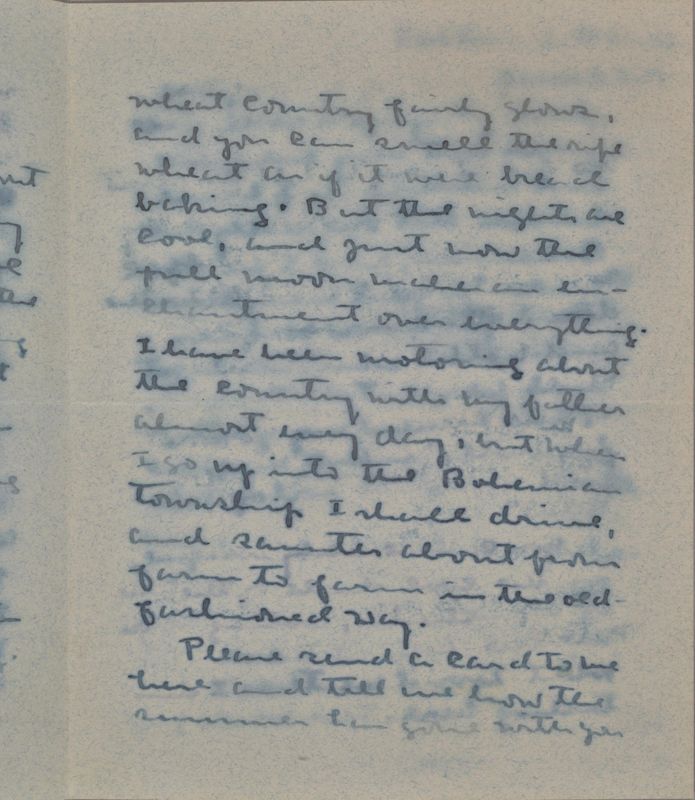 wheat country fairly glows,
and you can smell the ripe
wheat as if it were bread
baking. But the nights are
cool, and just now the
full moon makes an en-
chantment over everything.
I have been motoring about
the country with my father
almost every day, but when
I go up into the Bohemian
township I shall drive,
and saunter about from
farm to farm in the old-
fashioned way.
Please send a card to me
here and tell me how the
summer has gone with you